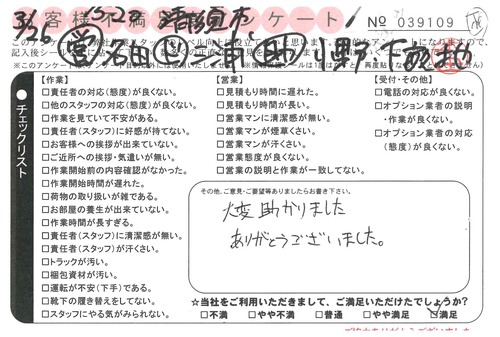 お客様不満足アンケート!
№ 039109
3/26
15-22
横須賀市
※このアンケート
チェックリスト
【作業】
□責任者の対応(態度)が良くない。
□他のスタッフの対応(態度)が良くない。
□作業を見ていて不安がある。
□責任者(スタッフ)に好感が持てない。
□お客様への挨拶が出来ていない。
□ご近所への挨拶・気遣いが無い。
□作業開始前の内容確認がなかった。
□作業開始時間が遅れた。
□荷物の取り扱いが雑である。
□お部屋の養生が出来ていない。
□作業時間が長すぎる。
□責任者(スタッフ)に清潔感が無い。
□責任者(スタッフ)が汗くさい。
□トラックが汚い。
□梱包資材が汚い。
□運転が不安(下手)である。
□靴下の履き替えをしてない。
□スタッフにやる気がみられない。
【営業】
□見積もり時間に遅れた。
□見積もり時間が長い。
□営業マンに清潔感が無い。
□営業マンが煙草くさい。
□営業マンが汗くさい。
□営業態度が良くない。
□営業の説明と作業が一致してない。
【受付・その他】
□電話の対応が良くない。
□オプション業者の説明
・作業が良くない。
□オプション業者の対応
(態度)が良くない。
その他、ご意見・ご要望等ありましたらお書き下さい。
大変助かりました
ありがとうございました。
☆当社をご利用いただきまして、ご満足いただけたでしょうか?
□不満 □やや不満 □普通 □やや満足 ☑満足